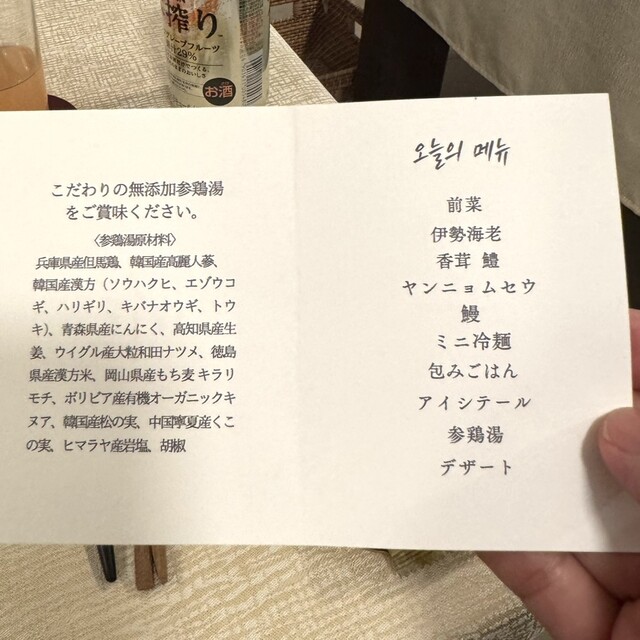 搾り
グレープフルーツ
29%
お酒
こだわりの無添加参鶏湯
をご賞味ください。
〈参鶏湯原材料〉
兵庫県産但馬鶏、韓国産高麗人蔘、
韓国産漢方（ソウハクヒ、エゾウコ
ギ、ハリギリ、キバナオウギ、トウ
キ）、青森県産にんにく、高知県産生
姜、ウイグル産大粒和田ナツメ、徳島
県産漢方米、岡山県産もち麦キラリ
モチ、ボリビア産有機オーガニックキ
ヌア、韓国産松の実、中国寧夏産くこ
の実、ヒマラヤ産岩塩、胡椒
오늘의 메뉴
前菜
伊勢海老
香茸 鱧
ヤンニョムセウ
鰻
ミニ冷麺
包みごはん
アイシテール
参鶏湯
デザート